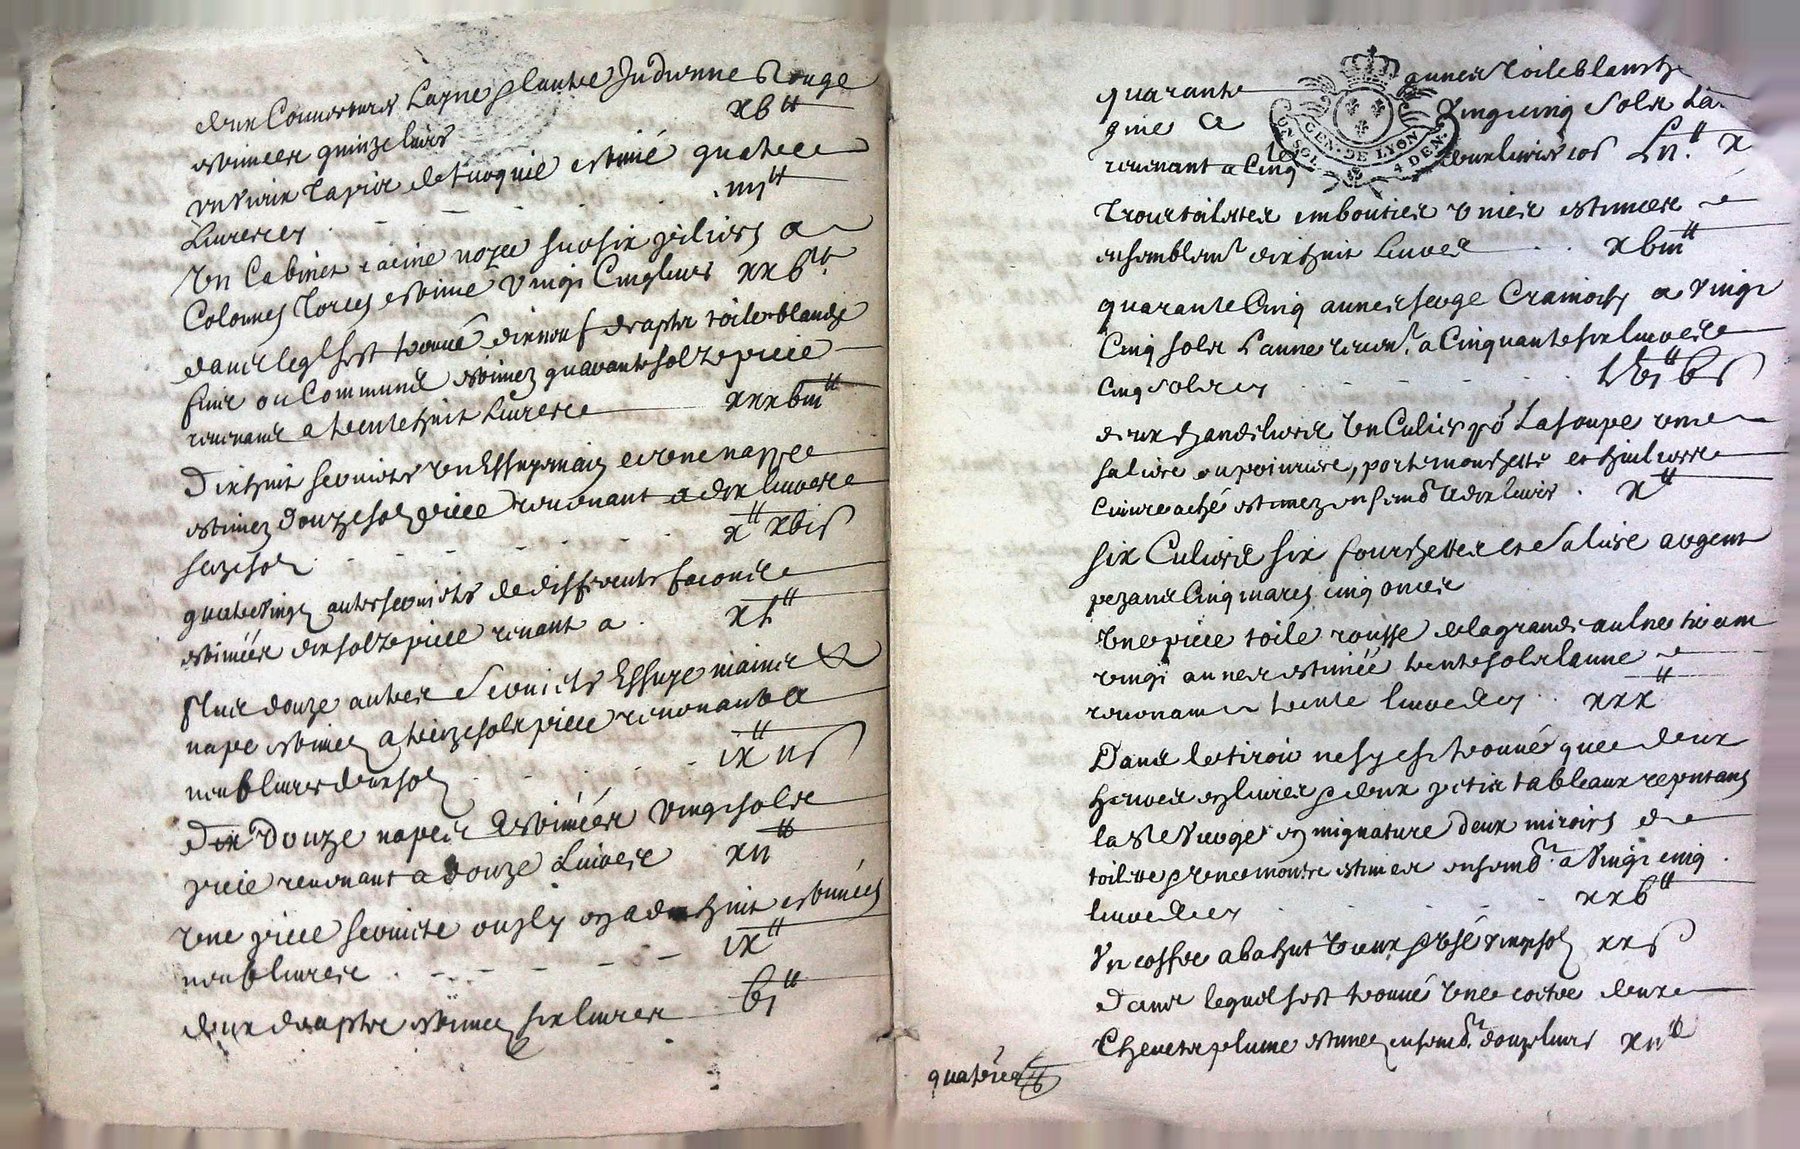 deux Couvertures Layne blanche Indienne Rouge
estimées quinze livres xb ₶
un vieux tapis de turquie estimé quatre
Livres cy iiij ₶
Un Cabinet racine noyer sur six piliers a
Colonnes torces estimé vingt Cinq livres xxb ₶
dans leql s'est trouvé dixneuf draptz toile blanche
fine ou Commune estimez quarante solz piece
revenant a trente huit Livres xxxbiij ₶
Dixhuit serviettes un Essuymain et une nappe
estimez douze sol piece revenant a dix livres
seize sol x ₶ xbi s
quatre vingt autres serviettes de differents facons
estimées dix solz piece revenant a xl ₶
Plus douze autres serviettes Essuye mains &
nape estimez a treize sols piece revenant a
neuf livres deux sol ix ₶ ii s
dix Douze napes estimées vingt sols
piece revenant a douze Livres xii ₶
Une piece serviette en dixhuit estimées
neuf livres ix ₶
deux draptz estimez six livres bi ₶
quarante aunes toile blanche
vingt cinq sols La
revenant a Cinq livres
GEN. DE LYON
4 DEN.
Trois toilettes unies estimées
ensemblemt dixhuit Livres xbiij ₶
quarante Cinq aunes serge Cramoisy a vingt
Cinq sols L'aune revent a Cinquante six livres
Cinq sols cy lbi ₶ b s
deux chandeliers Un Culier pr La soupe une
saliere ou poivriere, porte mouchette et huilliere
Cuivre aché estimez ensembt a dix livres x ₶
six Culieres six fourchettes et saliere argent
pezant Cinq marcs cinq onces
Une piece toile rousse de la grande aulne tirant
vingt aunes estimée trente sols laune
revenant a trente livres cy xxx ₶
Dans le tiroir ne s'y est trouvé que deux
heures en livres p deux petits tableaux repntans
la Ste Vierge en mignature deux miroirs de
toilette p une montre estimées ensembt a vingt cinq
livres cy xxb ₶
Un coffre a bahut vieux vingt sol xx s
dans lequel s'est trouvé une coitre deux
Chevets plume estimez ensembt douze livres xii ₶